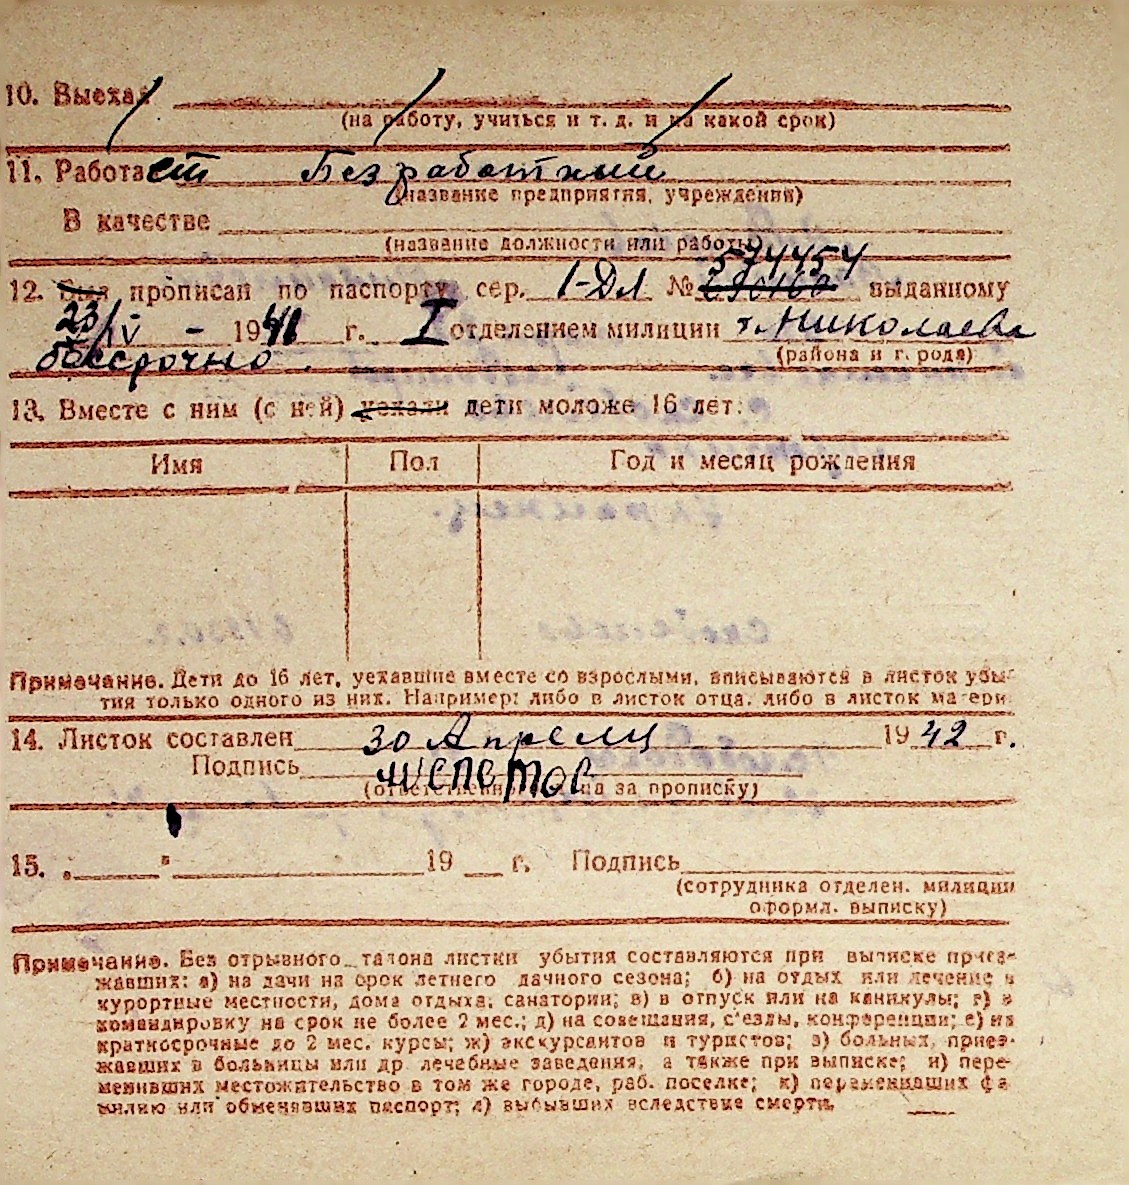 10. Выехал
(на работу, учиться и т. д. и на какой срок)
11. Работает Безработный
(название предприятия, учреждения)
В качестве
(название должности или работы)
574454
12. Был прописан по паспорту сер. 1-Дл № выданному
23/IV - 1941 г. I отделением милиции г. Николаева
бессрочно. (района и города)
13. Вместе с ним (с ней) уехали дети моложе 16 лет:
Имя Пол Год и месяц рождения
Примечание. Дети до 16 лет, уехавшие вместе со взрослыми, вписываются в листок убы-
тия только одного из них. Например: либо в листок отца, либо в листок матери.
14. Листок составлен 30 Апреля 1942 г.
Подпись
(ответственного лица за прописку)
15. " " 19 г. Подпись
(сотрудника отделен. милиции
оформл. выписку)
Примечание. Без отрывного талона листки убытия составляются при выписке приез-
жавших: а) на дачи на срок летнего дачного сезона; б) на отдых или лечение в
курортные местности, дома отдыха, санатории; в) в отпуск или на каникулы; г) в
командировку на срок не более 2 мес.; д) на совещания, с'езды, конференции; е) на
краткосрочные до 2 мес. курсы; ж) экскурсантов и туристов; з) больных, приез-
жавших в больницы или др. лечебные заведения, а также при выписке; и) пере-
менивших местожительство в том же городе, раб. поселке; к) переменивших фа-
милию или обменявших паспорт; л) выбывших вследствие смерти.